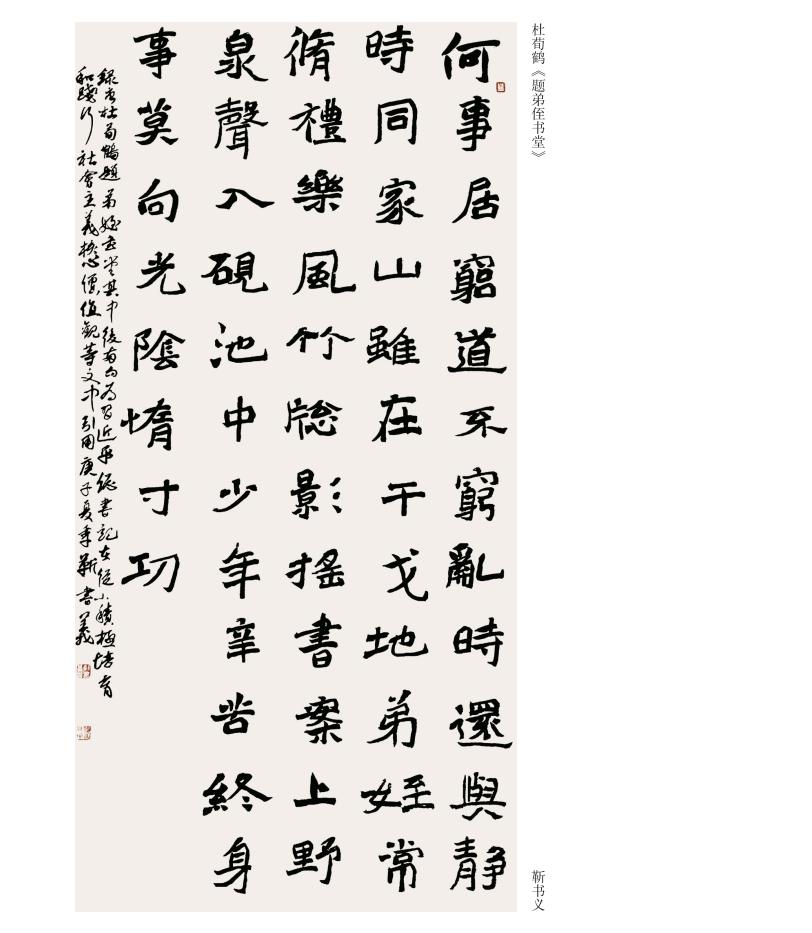 杜荀鹤《题弟侄书堂》
靳书义
何事居窮道不窮亂時還與靜
時同家山雖在干戈地弟姪常
脩禮樂風竹牕影搖書案上野
泉聲入硯池中少年辛苦終身
事莫向光陰惰寸功
錄唐杜荀鶴題弟姪書堂其中後兩句為習近平總書記在從小積極培育
和踐行社會主義核心價值觀等文中引用庚子夏季靳書義